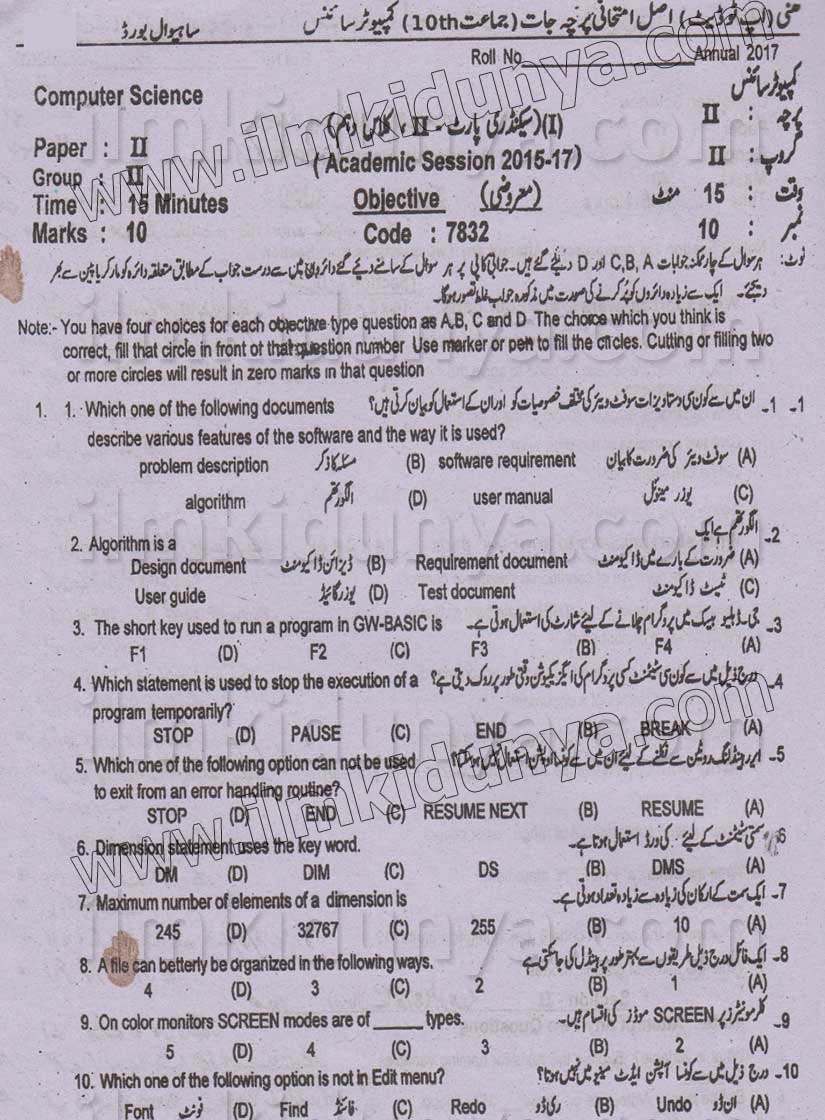 اصل امتحانی پرچہ جات (جماعت 10th) کمپیوٹر سائنس ساہیوال بورڈ
Roll No Annual 2017
Computer Science کمپیوٹر سائنس
(I) (سیکنڈری پارٹ - II ، کلاس دہم)
Paper : II پرچہ : II
(Academic Session 2015-17)
Group : II گروپ : II
Time : 15 Minutes Objective (معروضی) وقت : 15 منٹ
Marks : 10 Code : 7832 نمبر : 10
نوٹ: ہر سوال کے چار ممکنہ جوابات C,B,A اور D دیئے گئے ہیں۔ جوابی کاپی پر ہر سوال کے سامنے دیئے گئے دائروں میں سے درست جواب کے مطابق متعلقہ دائرہ کو مارکر یا پین سے بھر
دیجئے۔ ایک سے زیادہ دائروں کو پُر کرنے کی صورت میں مذکورہ جواب غلط تصور ہوگا۔
Note:- You have four choices for each objective type question as A,B, C and D The choice which you think is
correct, fill that circle in front of that question number Use marker or pen to fill the circles. Cutting or filling two
or more circles will result in zero marks in that question
1. 1. Which one of the following documents ان میں سے کون سی دستاویزات سوفٹ ویئر کی مختلف خصوصیات کو اور ان کے استعمال کو بیان کرتی ہیں؟ -1 -1
describe various features of the software and the way it is used?
problem description مسئلہ کا ذکر (B) software requirement سوفٹ ویئر کی ضرورت کا بیان (A)
algorithm الگورتھم (D) user manual یوزر مینوئل (C)
2. Algorithm is a الگورتھم ہے ایک -2
Design document ڈیزائن ڈاکیومنٹ (B) Requirement document ضرورت کے بارے میں ڈاکیومنٹ (A)
User guide یوزر گائیڈ (D) Test document ٹیسٹ ڈاکیومنٹ (C)
3. The short key used to run a program in GW-BASIC is جی۔ ڈبلیو بیسک میں پروگرام چلانے کے لیئے شارٹ کی استعمال ہوتی ہے۔ -3
F1 (D) F2 (C) F3 (B) F4 (A)
4. Which statement is used to stop the execution of a درج ذیل میں سے کون سی سٹیٹمنٹ کسی پروگرام کی ایگزیکیوشن وقتی طور پر روک دیتی ہے؟ -4
program temporarily?
STOP (D) PAUSE (C) END (B) BREAK (A)
5. Which one of the following option can not be used ایرر ہینڈلنگ روٹین سے نکلنے کے لیئے ان میں سے کونسا اوپشن استعمال نہیں ہو سکتا؟ -5
to exit from an error handling routine?
STOP (D) END (C) RESUME NEXT (B) RESUME (A)
6. Dimension statement uses the key word. سمتی سٹیٹمنٹ کے لیئے کی ورڈ استعمال ہوتا ہے۔ -6
DM (D) DIM (C) DS (B) DMS (A)
7. Maximum number of elements of a dimension is ایک سمت کے ارکان کی زیادہ سے زیادہ تعداد ہوتی ہے۔ -7
245 (D) 32767 (C) 255 (B) 10 (A)
8. A file can betterly be organized in the following ways. ایک فائل درج ذیل طریقوں سے بہتر طور پر ہینڈل کی جا سکتی ہے -8
4 (D) 3 (C) 2 (B) 1 (A)
9. On color monitors SCREEN modes are of ______ types. کلر مونیٹرز پر SCREEN موڈز کی اقسام ہیں۔ -9
5 (D) 4 (C) 3 (B) 2 (A)
10. Which one of the following option is not in Edit menu? درج ذیل میں سے کونسا آپشن ایڈٹ مینیو میں نہیں ہوتا؟ -10
Font فونٹ (D) Find فائنڈ (C) Redo ری ڈو (B) Undo ان ڈو (A)
www.ilmkidunya.com
www.ilmkidunya.com
ilmkidunya.com
ilmkidunya.com
ilmkidunya.com
ilmkidunya.com